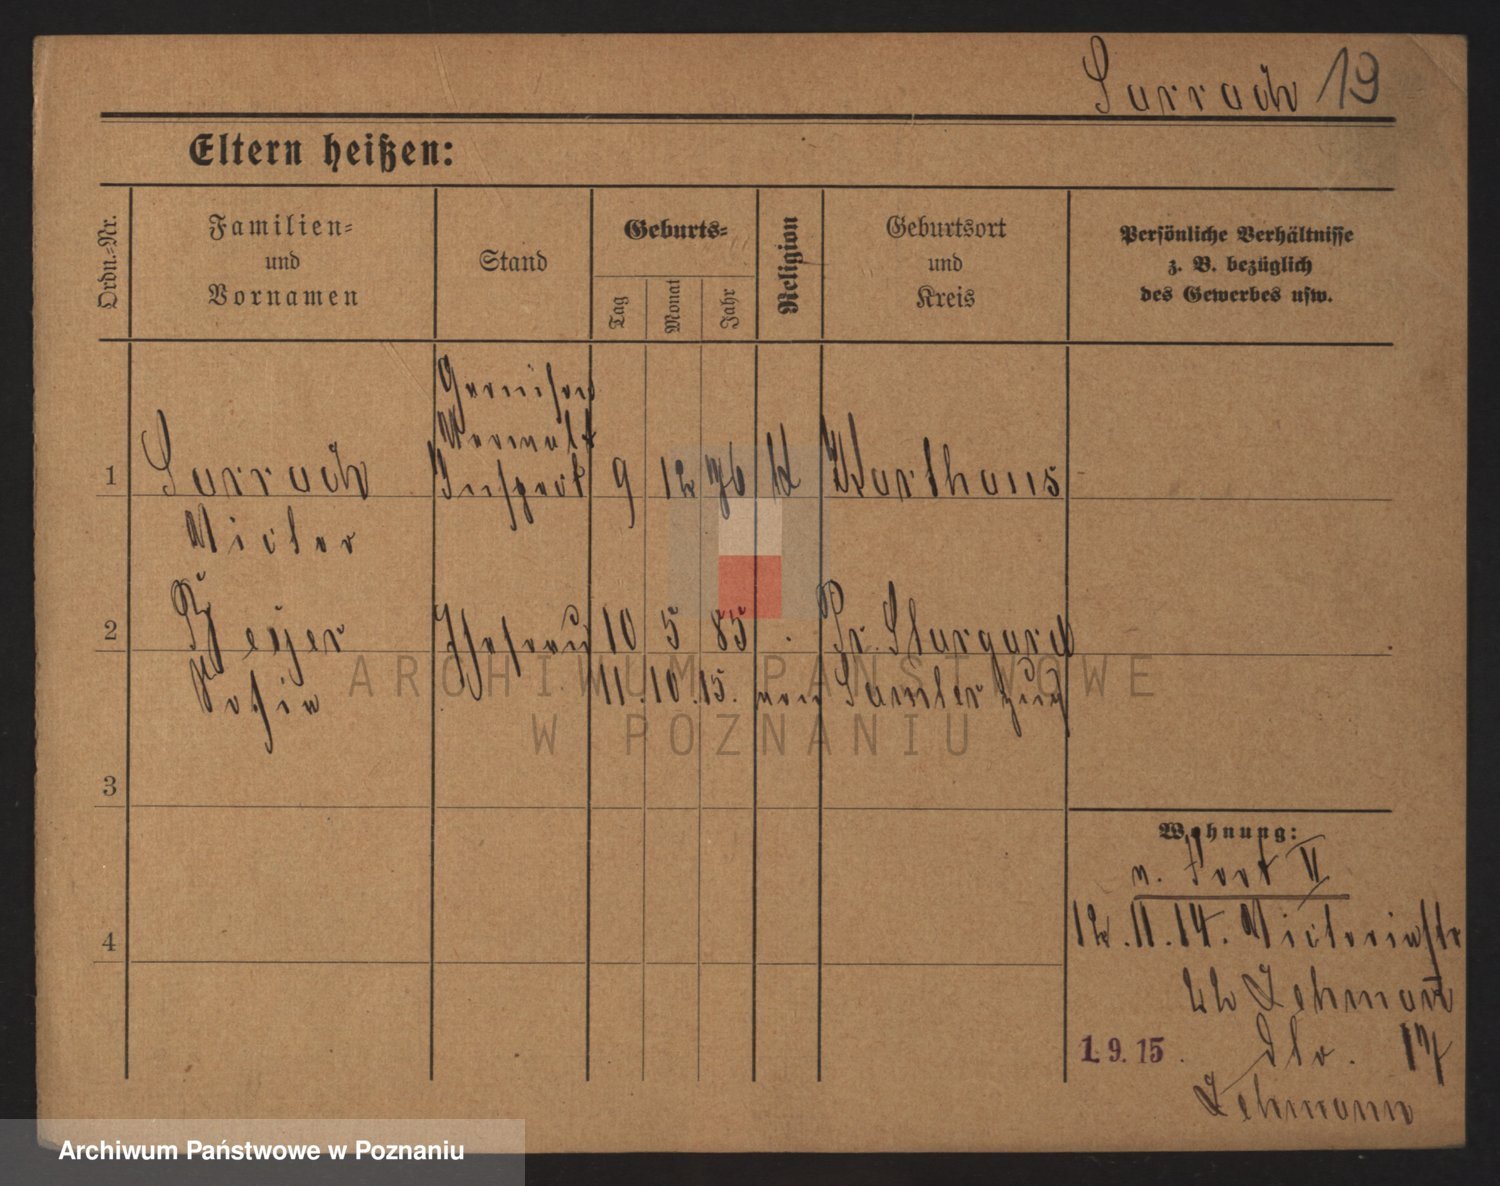 Sarrach 19
Eltern heißen:
Ordn.-Nr.
Familien-
und
Vornamen
Stand
Geburts-
Tag
Monat
Jahr
Religion
Geburtsort
und
Kreis
Persönliche Verhältnisse
z. B. bezüglich
des Gewerbes usw.
Garnison
Verwalt
1 Sarrach Inspekt 9 12 76 k Karthaus
Victor
2 Beyer Ehefrau 10 5 85 . Pr. Stargard
Sofie 11. 10. 15. von Samter zur
3
Wohnung:
n. Fort II
4
12. 11. 14. Victoriastr
22 Lehmann
1. 9. 15. dto. 17
Lehmann
ARCHIWUM PAŃSTWOWE
W POZNANIU
Archiwum Państwowe w Poznaniu